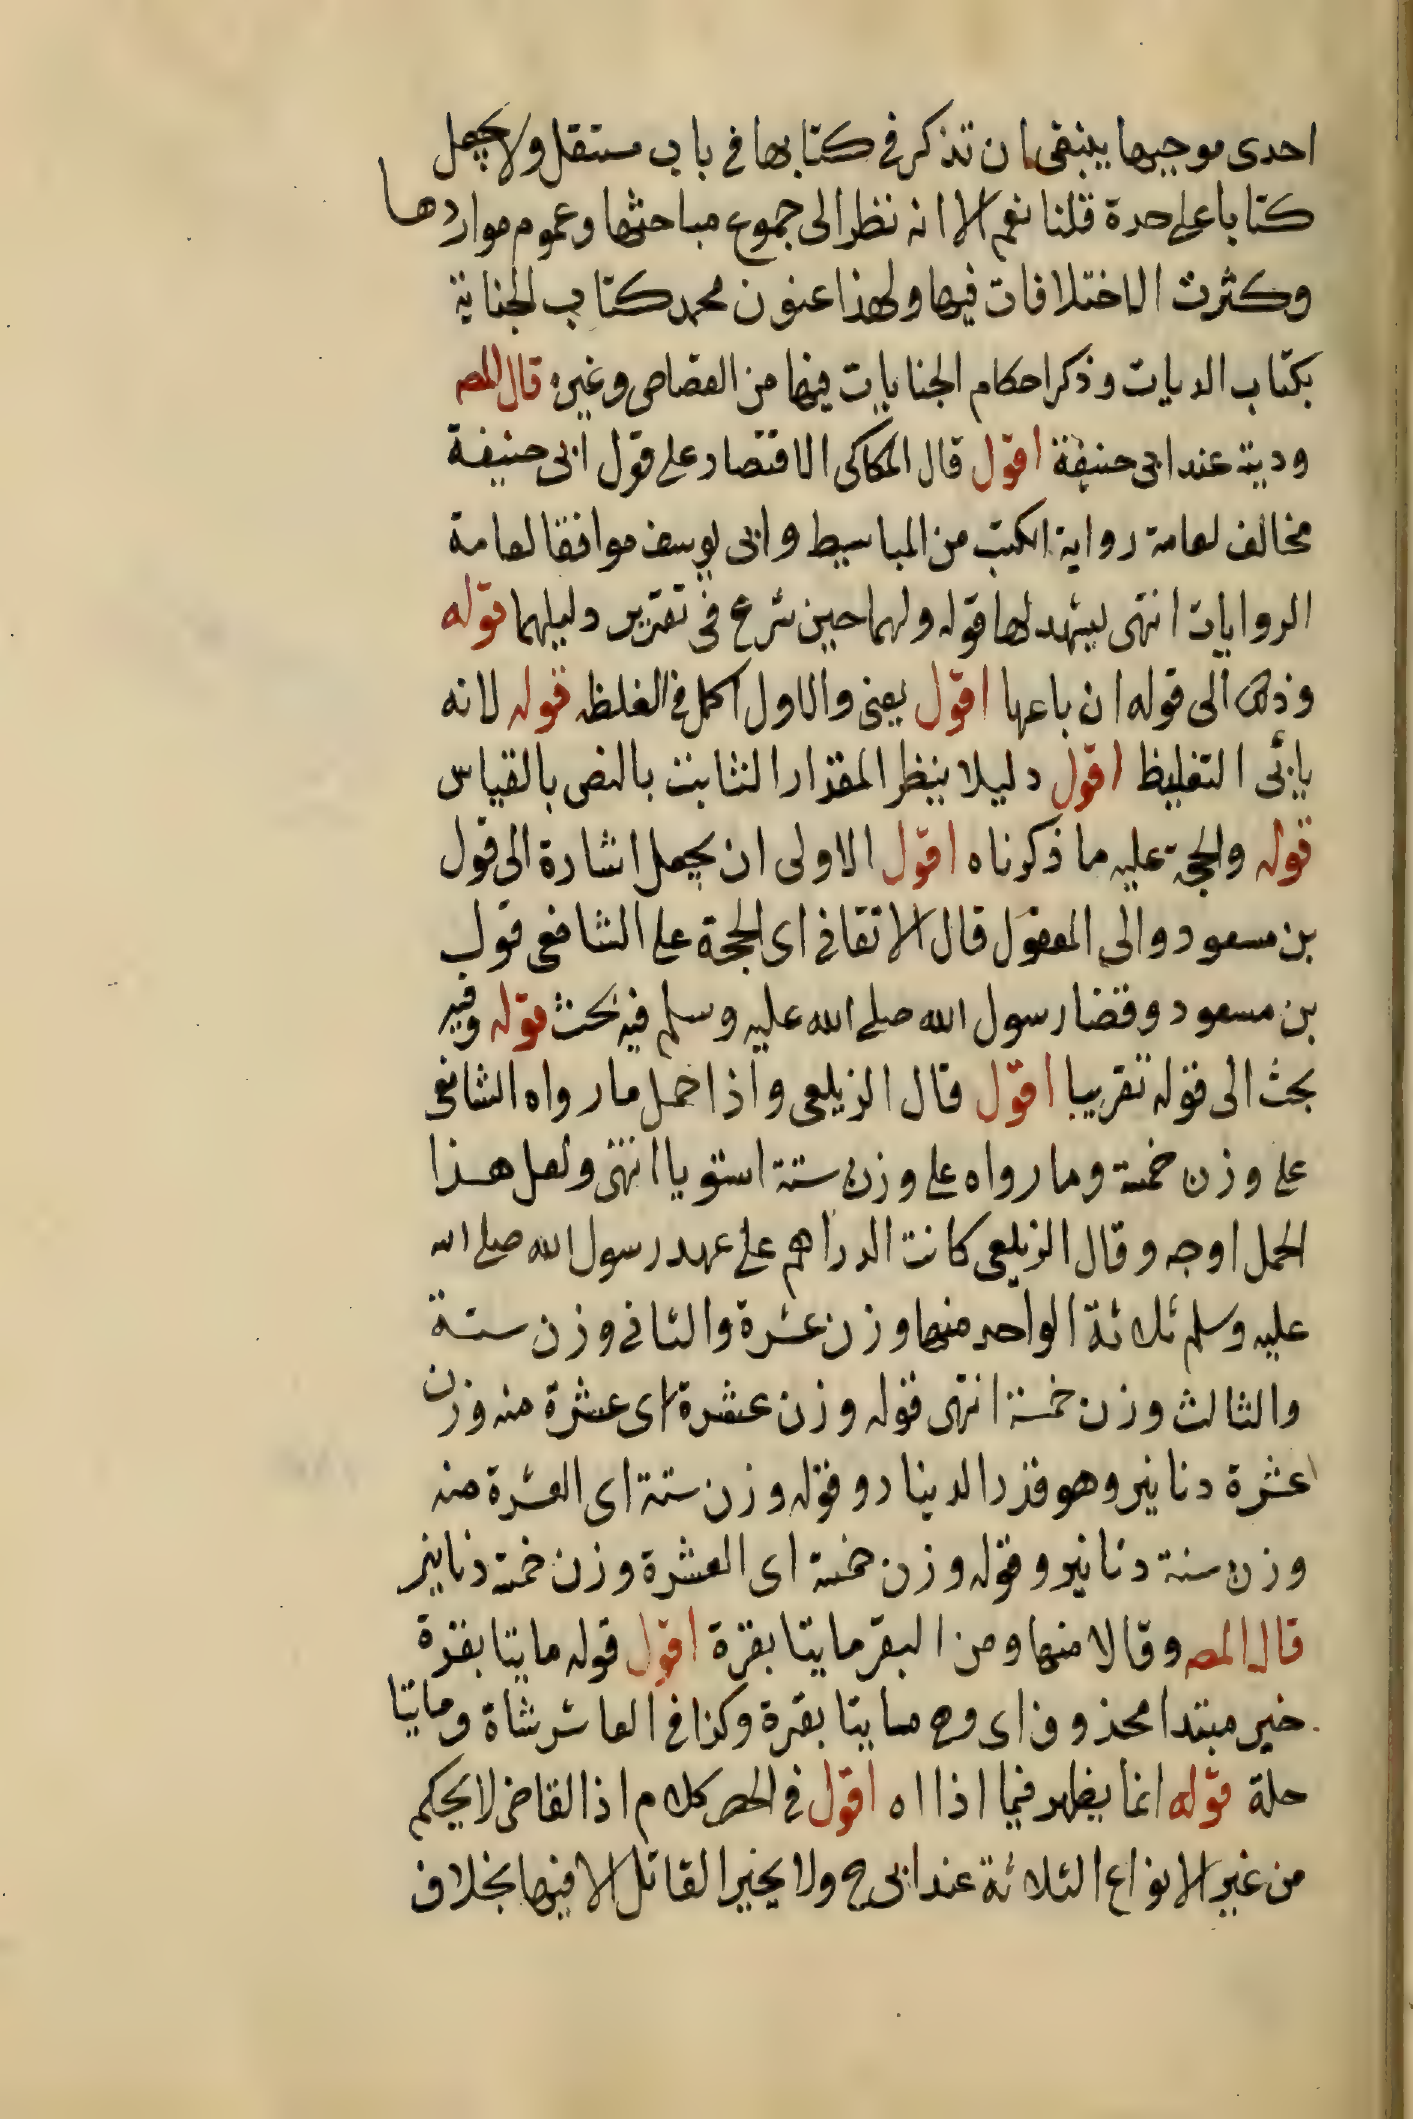 احدى موجبيها ينبغى ان تذكر فى كتابها فى باب مستقل ولا يجعل
كتابا على حدة قلنا نعم الا انه نظر الى جموع مباحثها وعموم مواردها
وكثرت الاختلافات فيها ولهذا عنون محمد كتاب الجناية
بكتاب الديات وذكر احكام الجنايات فيها من القصاص وغيره قال المص
ودية عند ابى حنيفة اقول قال الكاكى الاقتصار على قول ابى حنيفة
مخالف لعامة رواية الكتب من المباسيط وابى يوسف موافقا لعامة
الروايات انتهى يشهد لها قوله ولهما حين شرع فى تقرير دليلهما قوله
وذلك الى قوله ان باعها اقول يعنى والاول اكمل فى الغلظ قوله لانه
يابى التغليظ اقول دليلا ينظر المقدار الثابت بالنص بالقياس
قوله والحجة عليه ما ذكرناه اقول الاولى ان يجعل اشارة الى قول
بن مسعود والى المعقول قال الاتقانى اى الحجة على الشافعى قول
بن مسعود وقضا رسول الله صلى الله عليه وسلم فيه بحث قوله وفيه
بحث الى قوله تقريبا اقول قال الزيلعى واذا حمل ما رواه الشافعى
على وزن خمسة وما رواه على وزن ستة استويا انتهى ولعل هذا
الحمل اوجه وقال الزيلعى كانت الدراهم على عهد رسول الله صلى الله
عليه وسلم ثلاثة الواحد منها وزن عشرة والثانى وزن ستة
والثالث وزن خمسة انتهى قوله وزن عشرة اى عشرة منه وزن
عشرة دنانير وهو قدر الدينار وقوله وزن ستة اى العشرة منه
وزن ستة دنانير وقوله وزن خمسة اى العشرة وزن خمسة دنانير
قال المص وقالا منها ومن البقر مايتا بقرة اقول قوله مايتا بقرة
خبر مبتدا محذوف اى وهى مايتا بقرة وكذا فى العاشر شاة ومايتا
حلة قوله انما يظهر فيما اذا اه اقول فى الحصر كلام اذ القاضى لا يحكم
من غير الانواع الثلاثة عند ابى ح ولا يخير القاتل الا فيها بخلاف